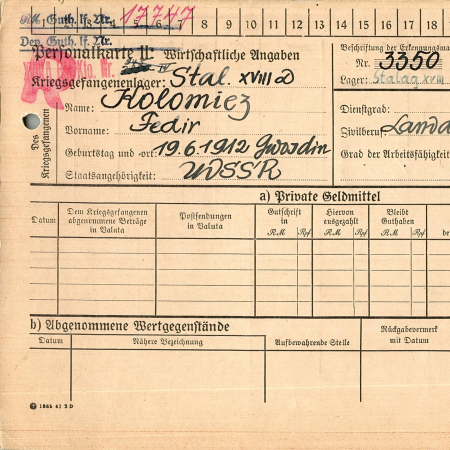 RM. Guth. lf. Nr. 17747 8 9 10 11 12 13 14 15 16 17 18
Dev. Guth. lf. Nr.
Personalkarte II: Wirtschaftliche Angaben
Beschriftung der Erkennungsma
Nr. 3350
Kriegsgefangenenlager: Stal. XVIII D
Lager: Stalag XVIII
Des Kriegsgefangenen
Name: Kolomiez
Vorname: Fedir
Dienstgrad:
Zivilberuf: Landa
Geburtstag und -ort: 19.6.1912 Gwosdin
Grad der Arbeitsfähigkeit
Staatsangehörigkeit: UDSSR
a) Private Geldmittel
Datum
Dem Kriegsgefangenen abgenommene Beträge in Valuta
Postsendungen in Valuta
Gutschrift in
Hiervon ausgezahlt
Bleibt Guthaben
RM Rpf RM Rpf RM Rpf
be
b) Abgenommene Wertgegenstände
Datum
Nähere Bezeichnung
Aufbewahrende Stelle
Rückgabevermerk mit Datum
1865 41 2 D